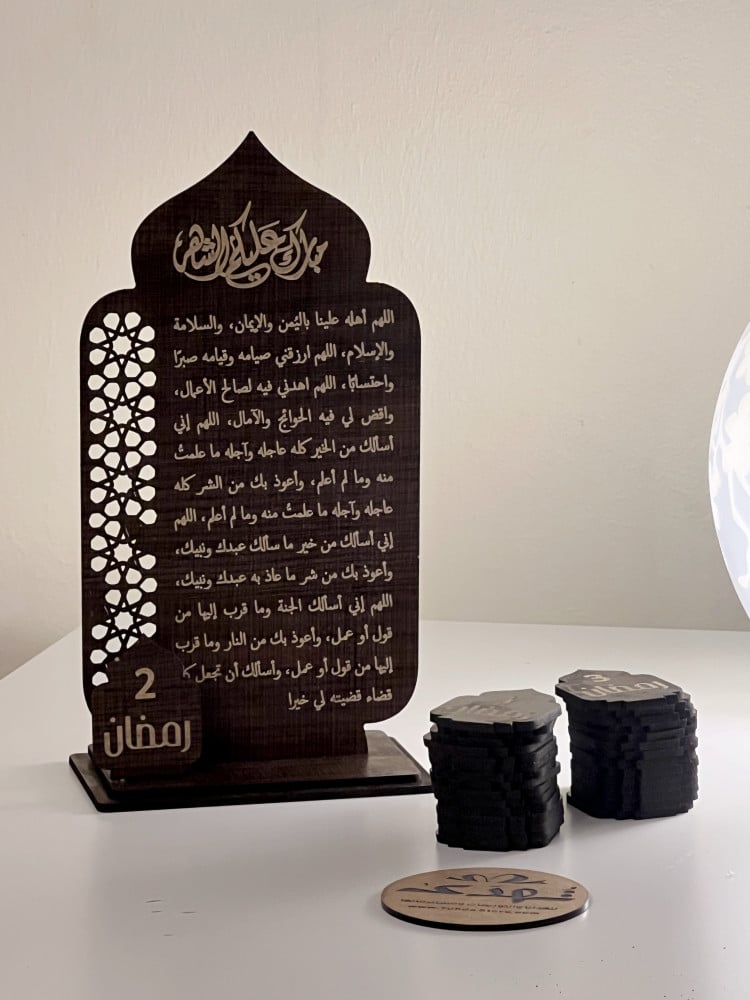 مبارك عليكم الشهر
اللهم أهله علينا باليُمن والإيمان، والسلامة
والإسلام، اللهم ارزقني صيامه وقيامه صبرًا
واحتسابًا، اللهم اهدني فيه لصالح الأعمال،
واقض لي فيه الحوائج والآمال، اللهم إني
أسألك من الخير كله عاجله وآجله ما علمتُ
منه وما لم أعلم، وأعوذ بك من الشر كله
عاجله وآجله ما علمتُ منه وما لم أعلم، اللهم
إني أسألك من خير ما سألك عبدك ونبيك،
وأعوذ بك من شر ما عاذ به عبدك ونبيك،
اللهم إني أسألك الجنة وما قرب إليها من
قول أو عمل، وأعوذ بك من النار وما قرب
إليها من قول أو عمل، وأسألك أن تجعل
قضاء قضيته لي خيرا
2
رمضان
3
رمضان